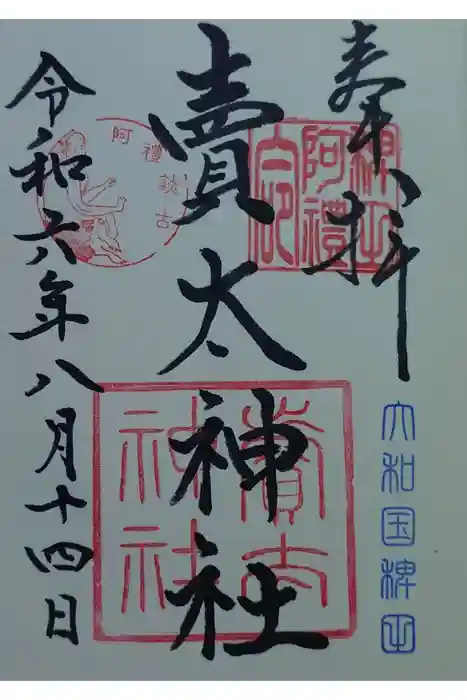 奉拝
稗田
阿禮
大和国稗田
賣太神社
賣太
神社
阿禮
談古
令和六年八月十四日